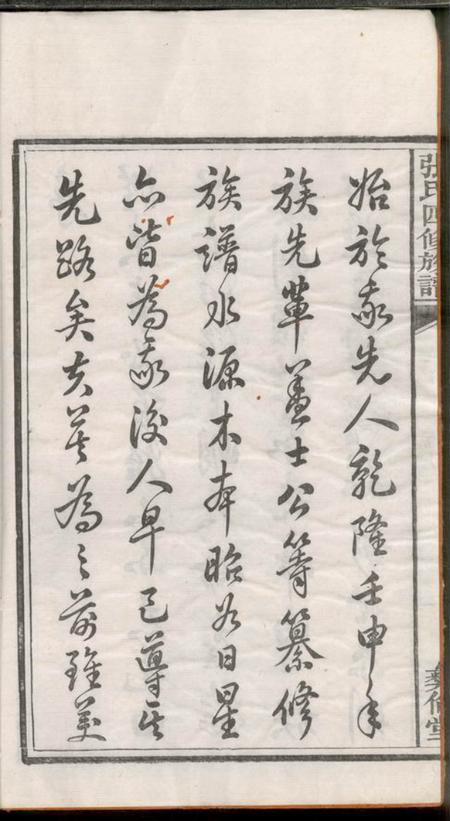 張氏四修族譜
始於我先人乾隆壬申年
族先輩士公等纂修
族譜水源木本昭若日星
亦皆為我後人早已導其
先路矣夫莫為之前雖美